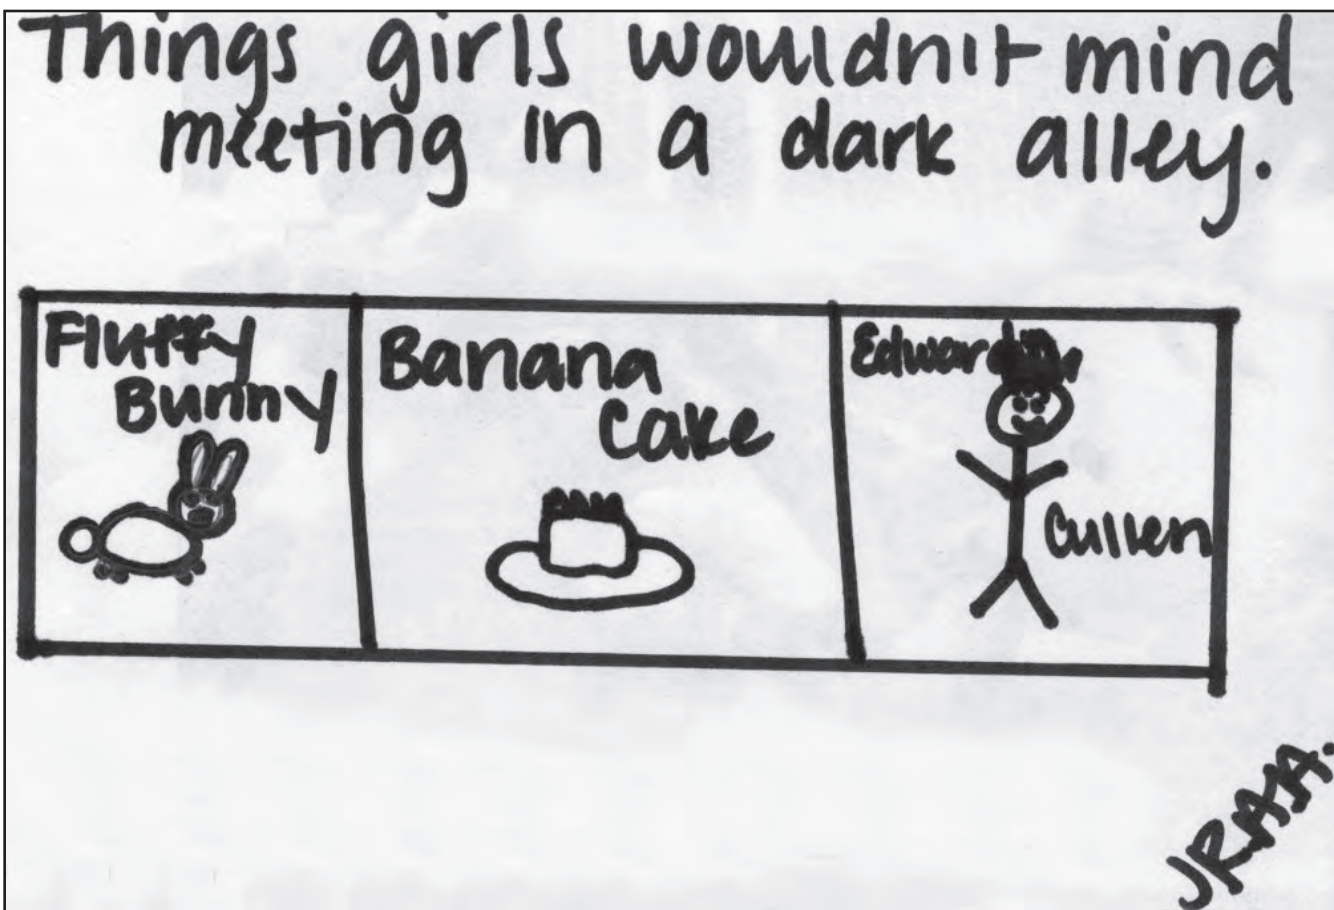 Things girls wouldn't mind
meeting in a dark alley.
Fluffy
Bunny
Banana
Cake
Edward
Cullen
JRAA.